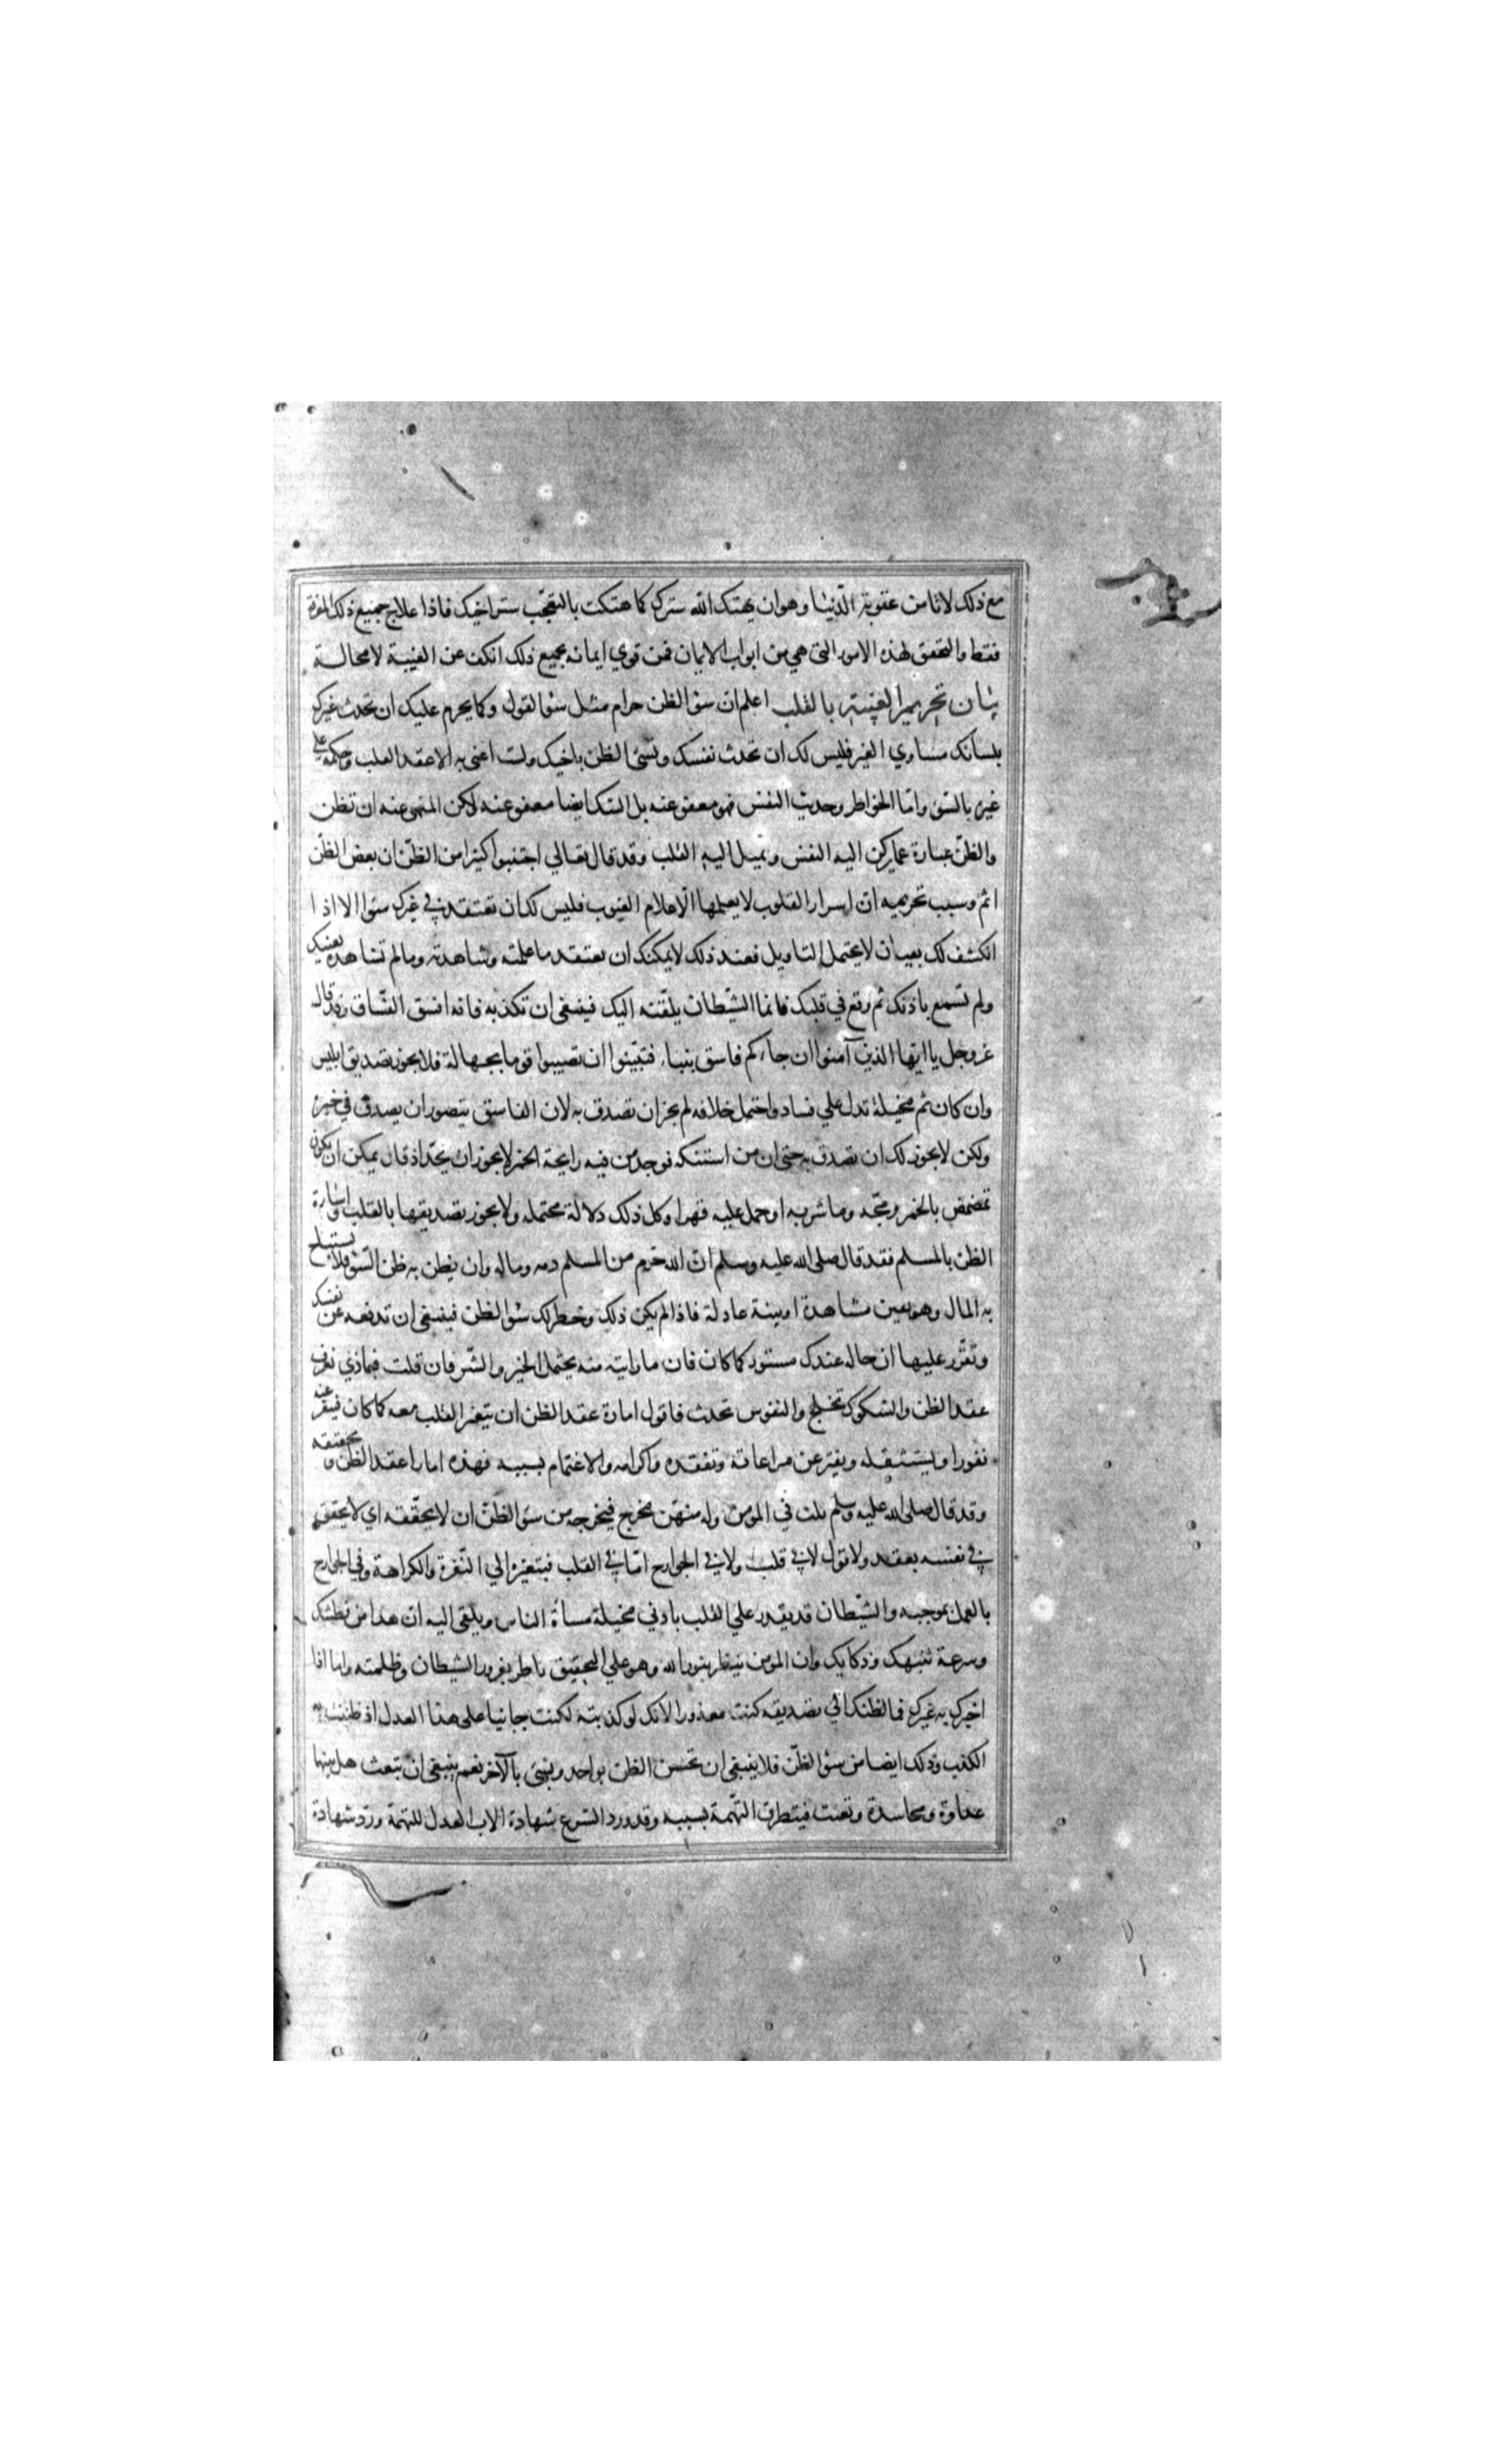 مع ذلك لا تامن عقوبة الدّنيا وهو ان يهتك الله سترك كما هتكت بالتعجّب ستر اخيك فاذا علاج جميع ذلك المعرفة
فقط والتحقق لهذه الامور التى هي من ابواب الايمان فمن قوي ايمانه بجميع ذلك انكف عن الغيبة لا محالة
بيان تحريم الغيبة بالقلب اعلم ان سؤ الظن حرام مثل سؤ القول وكما يحرم عليك ان تحدث غيرك
بلسانك مساوي الغير فليس لك ان تحدث نفسك وتسئ الظن باخيك ولست اعنى به الا عقد القلب وحكمه على
غيره بالسّؤ واما الخواطر وحديث النفس فهو معفو عنه بل الشك ايضا معفو عنه لكن المنهى عنه ان تظن
والظنّ عبارة عما يركن اليه النفس ويميل اليه القلب وقد قال تعالي اجتنبوا كثيرا من الظنّ ان بعض الظنّ
اثم وسبب تحريمه ان اسرار القلوب لا يعلمها الّا علام الغيوب فليس لك ان تعتقد في غيرك سؤا الا اذا
انكشف لك بعيان لا يحتمل التاويل فعند ذلك لا يمكنك ان تعتقد ما علمته وشاهدته وما لم تشاهده بعينيك
ولم تسمع باذنك ثم وقع في قلبك فانما الشّيطان يلقّنه اليك فينبغى ان تكذبه فانه افسق الفسّاق وقد قال
عز وجل يا ايّها الذين آمنوا ان جاءكم فاسق بنباء فتبيّنوا ان تصيبوا قوما بجهالة فلا يجوز تصديق ابليس
وان كان ثم مخيلة تدل علي فساد واحتمل خلافه لم يجز ان تصدق به لان الفاسق يتصور ان يصدق في خبره
ولكن لا يجوز لك ان تصدق به حتى ان من استنكه فوجد من فيه رايحة الخمر لا يجوز ان يحدّ اذ قال يمكن ان يكون
تمضمض بالخمر ومجّه وما شربه او حمل عليه قهرا وكل ذلك دلالة محتمله ولا يجوز تصديقها بالقلب واساءة
الظن بالمسلم فقد قال صلى الله عليه وسلم انّ الله حرم من المسلم دمه وماله وان يظن به ظن السّؤ فلا يستباح
به المال وهو بعين مشاهدة او بينة عادلة فاذا لم يكن ذلك وخطر لك سؤ الظن فينبغى ان تدفعه عن نفسك
وتقرّر عليها ان حاله عندك مستور كما كان فان ما رايته منه يحتمل الخير والشّر فان قلت فبماذي تعرف
عقد الظن والشكوك تختلج والنفوس تحدث فاقول امارة عقد الظن ان يتغير القلب معه كما كان فينفر عنه
نفورا ويستثقله ويفتر عن مراعاته وتفقده واكرامه والاغتمام بسببه فهذه امارا عقد الظن وتحقيقه
وقد قال صلى الله عليه وسلم ثلث في المومن وله منهنّ مخرج فيخرجه من سؤ الظنّ ان لا يحقّقه اي لا يحققه
في نفسه بعقد ولا قول لا في قلب ولا في الجوارح امّا في القلب فبتغيره الي النّفرة والكراهة وفي الجوارح
بالعمل بموجبه والشّيطان قد يقدر علي القلب بادني مخيلة مساأة الناس ويلقى اليه ان هذا من فطنتك
وسرعة تنبهك وذكايك وان المومن ينظر بنور الله وهو علي التحقيق ناظر بغرور الشيطان وظلمته واما اذا
اخبرك به غيرك فمال ظنك الي تصديقه كنت معذورا لانك لو كذبته لكنت جانيا على هذا العدل اذ ظننت به
الكذب وذلك ايضا من سؤ الظنّ فلا ينبغى ان تحسن الظن بواحد ويسئ بالآخر نعم ينبغى ان تبحث هل بينهما
عداوة ومحاسدة وتعنت فيتطرق التّهمة بسببه وقد ورد الشرع شهادة الاب العدل للتهمة ورد شهادة